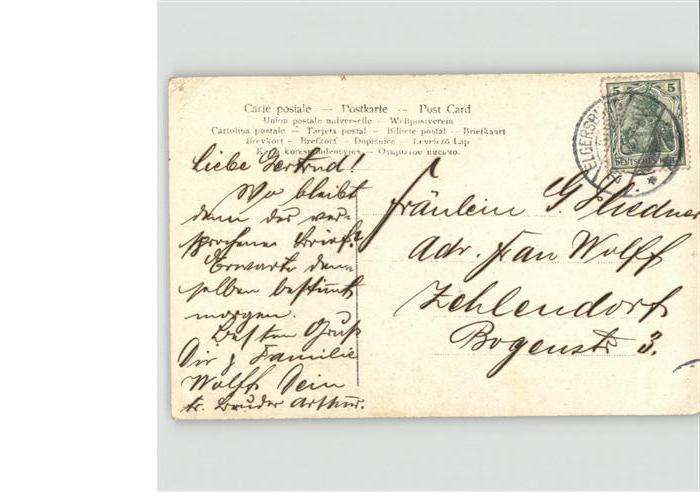 Carte postale — Postkarte — Post Card
Union postale universelle — Weltpostverein
Cartolina postale — Tarjeta postal — Billete postal — Briefkaart
Brevkort — Brefkort — Dopisnice — Levelező Lap
Karta korespondencyjna — Открытое письмо.
Liebe Gertrud!
Wo bleibt
denn der ver-
sprochene Brief?
Erwarte den-
selben bestimmt
morgen.
Besten Gruß
Dir & Familie
Wolff Dein
tr. Bruder Arthur.
5 5
DEUTSCHES REICH
Fräulein G.
Adr. Frau Wolff
Zehlendorf
Bogenstr 3.